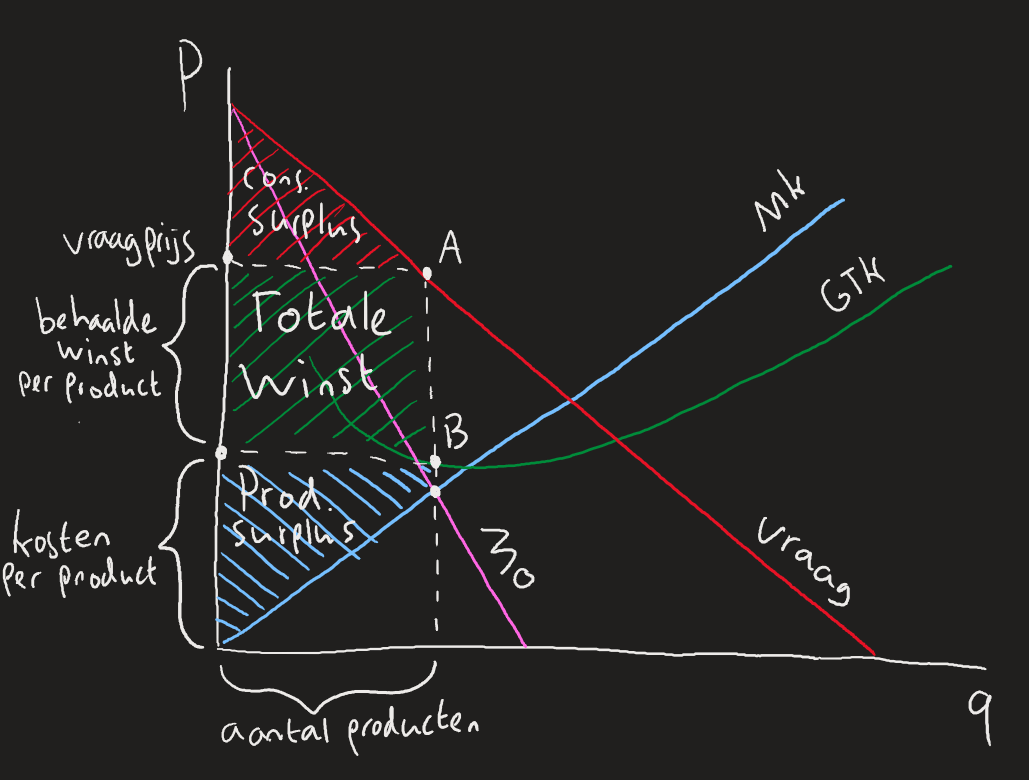 P
cons.
surplus
vraagprijs
A
Mk
GTK
behaalde
winst
per product
Totale
winst
B
Prod.
surplus
kosten
per product
MO
vraag
aantal producten
q